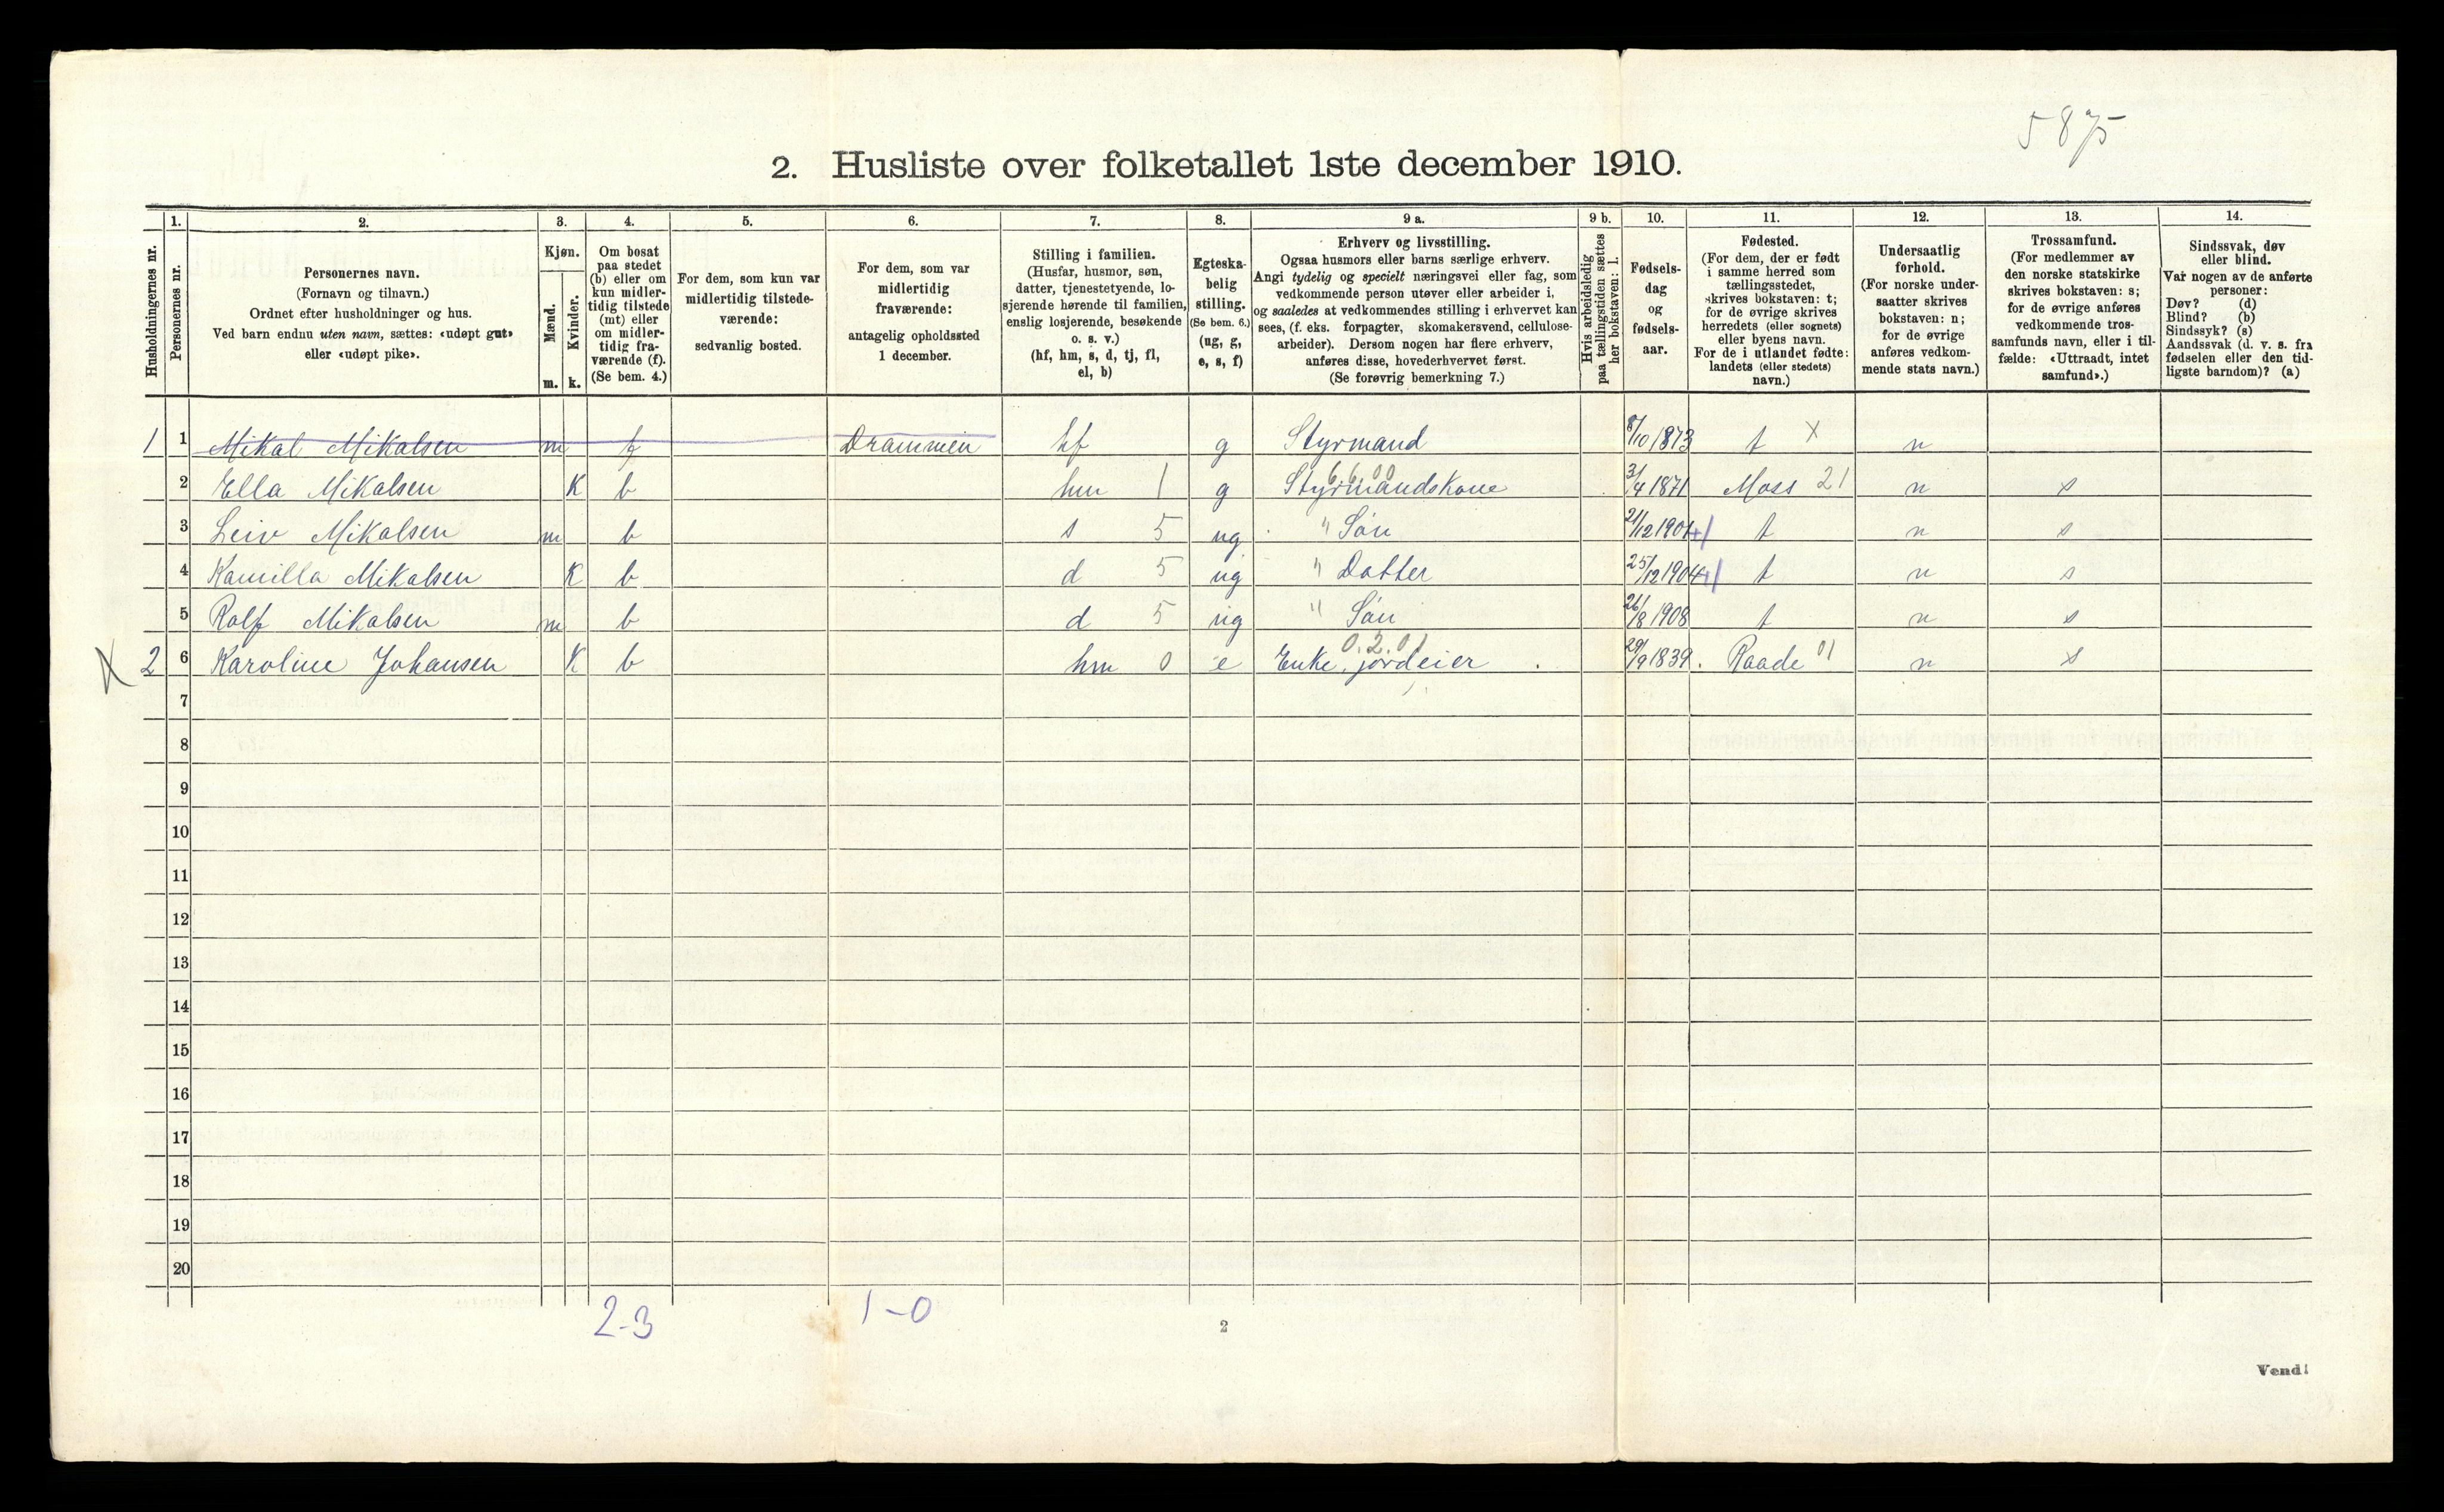 5875
2. Husliste over folketallet 1ste december 1910.
Husholdningernes nr.
1.
Personernes nr.
2.
Personernes navn.
(Fornavn og tilnavn.)
Ordnet efter husholdninger og hus.
Ved barn endnu uten navn, sættes: «udøpt gut»
eller «udøpt pike».
3.
Kjøn.
Mænd.
Kvinder.
m. k.
4.
Om bosat
paa stedet
(b) eller om
kun midler-
tidig tilstede
(mt) eller
om midler-
tidig fra-
værende (f).
(Se bem. 4.)
5.
For dem, som kun var
midlertidig tilstede-
værende:
sedvanlig bosted.
6.
For dem, som var
midlertidig
fraværende:
antagelig opholdssted
1 december.
7.
Stilling i familien.
(Husfar, husmor, søn,
datter, tjenestetyende, lo-
sjerende hørende til familien,
enslig losjerende, besøkende
o. s. v.)
(hf, hm, s, d, tj, fl,
el, b)
8.
Egteska-
belig
stilling.
(Se bem. 6.)
(ug, g,
e, s, f)
9 a.
Erhverv og livsstilling.
Ogsaa husmors eller barns særlige erhverv.
Angi tydelig og specielt næringsvei eller fag, som
vedkommende person utøver eller arbeider i,
og saaledes at vedkommendes stilling i erhvervet kan
sees, (f. eks. forpagter, skomakersvend, cellulose-
arbeider). Dersom nogen har flere erhverv,
anføres disse, hovederhvervet først.
(Se forøvrig bemerkning 7.)
9 b.
Hvis arbeidsledig
paa tællingstiden sættes
her bokstaven: l.
10.
Fødsels-
dag
og
fødsels-
aar.
11.
Fødested.
(For dem, der er født
i samme herred som
tællingsstedet,
skrives bokstaven: t;
for de øvrige skrives
herredets (eller sognets)
eller byens navn.
For de i utlandet fødte:
landets (eller stedets)
navn.)
12.
Undersaatlig
forhold.
(For norske under-
saatter skrives
bokstaven: n;
for de øvrige
anføres vedkom-
mende stats navn.)
13.
Trossamfund.
(For medlemmer av
den norske statskirke
skrives bokstaven: s;
for de øvrige anføres
vedkommende tros-
samfunds navn, eller i til-
fælde: «Uttraadt, intet
samfund».)
14.
Sindssvak, døv
eller blind.
Var nogen av de anførte
personer:
Døv? (d)
Blind? (b)
Sindssyk? (s)
Aandssvak (d. v. s. fra
fødselen eller den tid-
ligste barndom)? (a)
1 1 Mikal Mikalsen m f Drammen hf g Styrmand 8/10 1873 t X n
2 Ella Mikalsen K b hm 1 g Styrmandskone 6600 3/4 1871 Moss 21 n s
3 Leiv Mikalsen m b s 5 ug " Søn 21/12 1901 t n s
4 Kamilla Mikalsen K b d 5 ug " Datter 25/12 1904 t n s
5 Rolf Mikalsen m b d 5 ug " Søn 26/8 1908 t n s
X 2 6 Karoline Johansen K b hm 0 e Enke, jordeier 0.2.01 29/9 1839 Raade 01 n s
7
8
9
10
11
12
13
14
15
16
17
18
19
20
2-3 1-0
2
Vend!